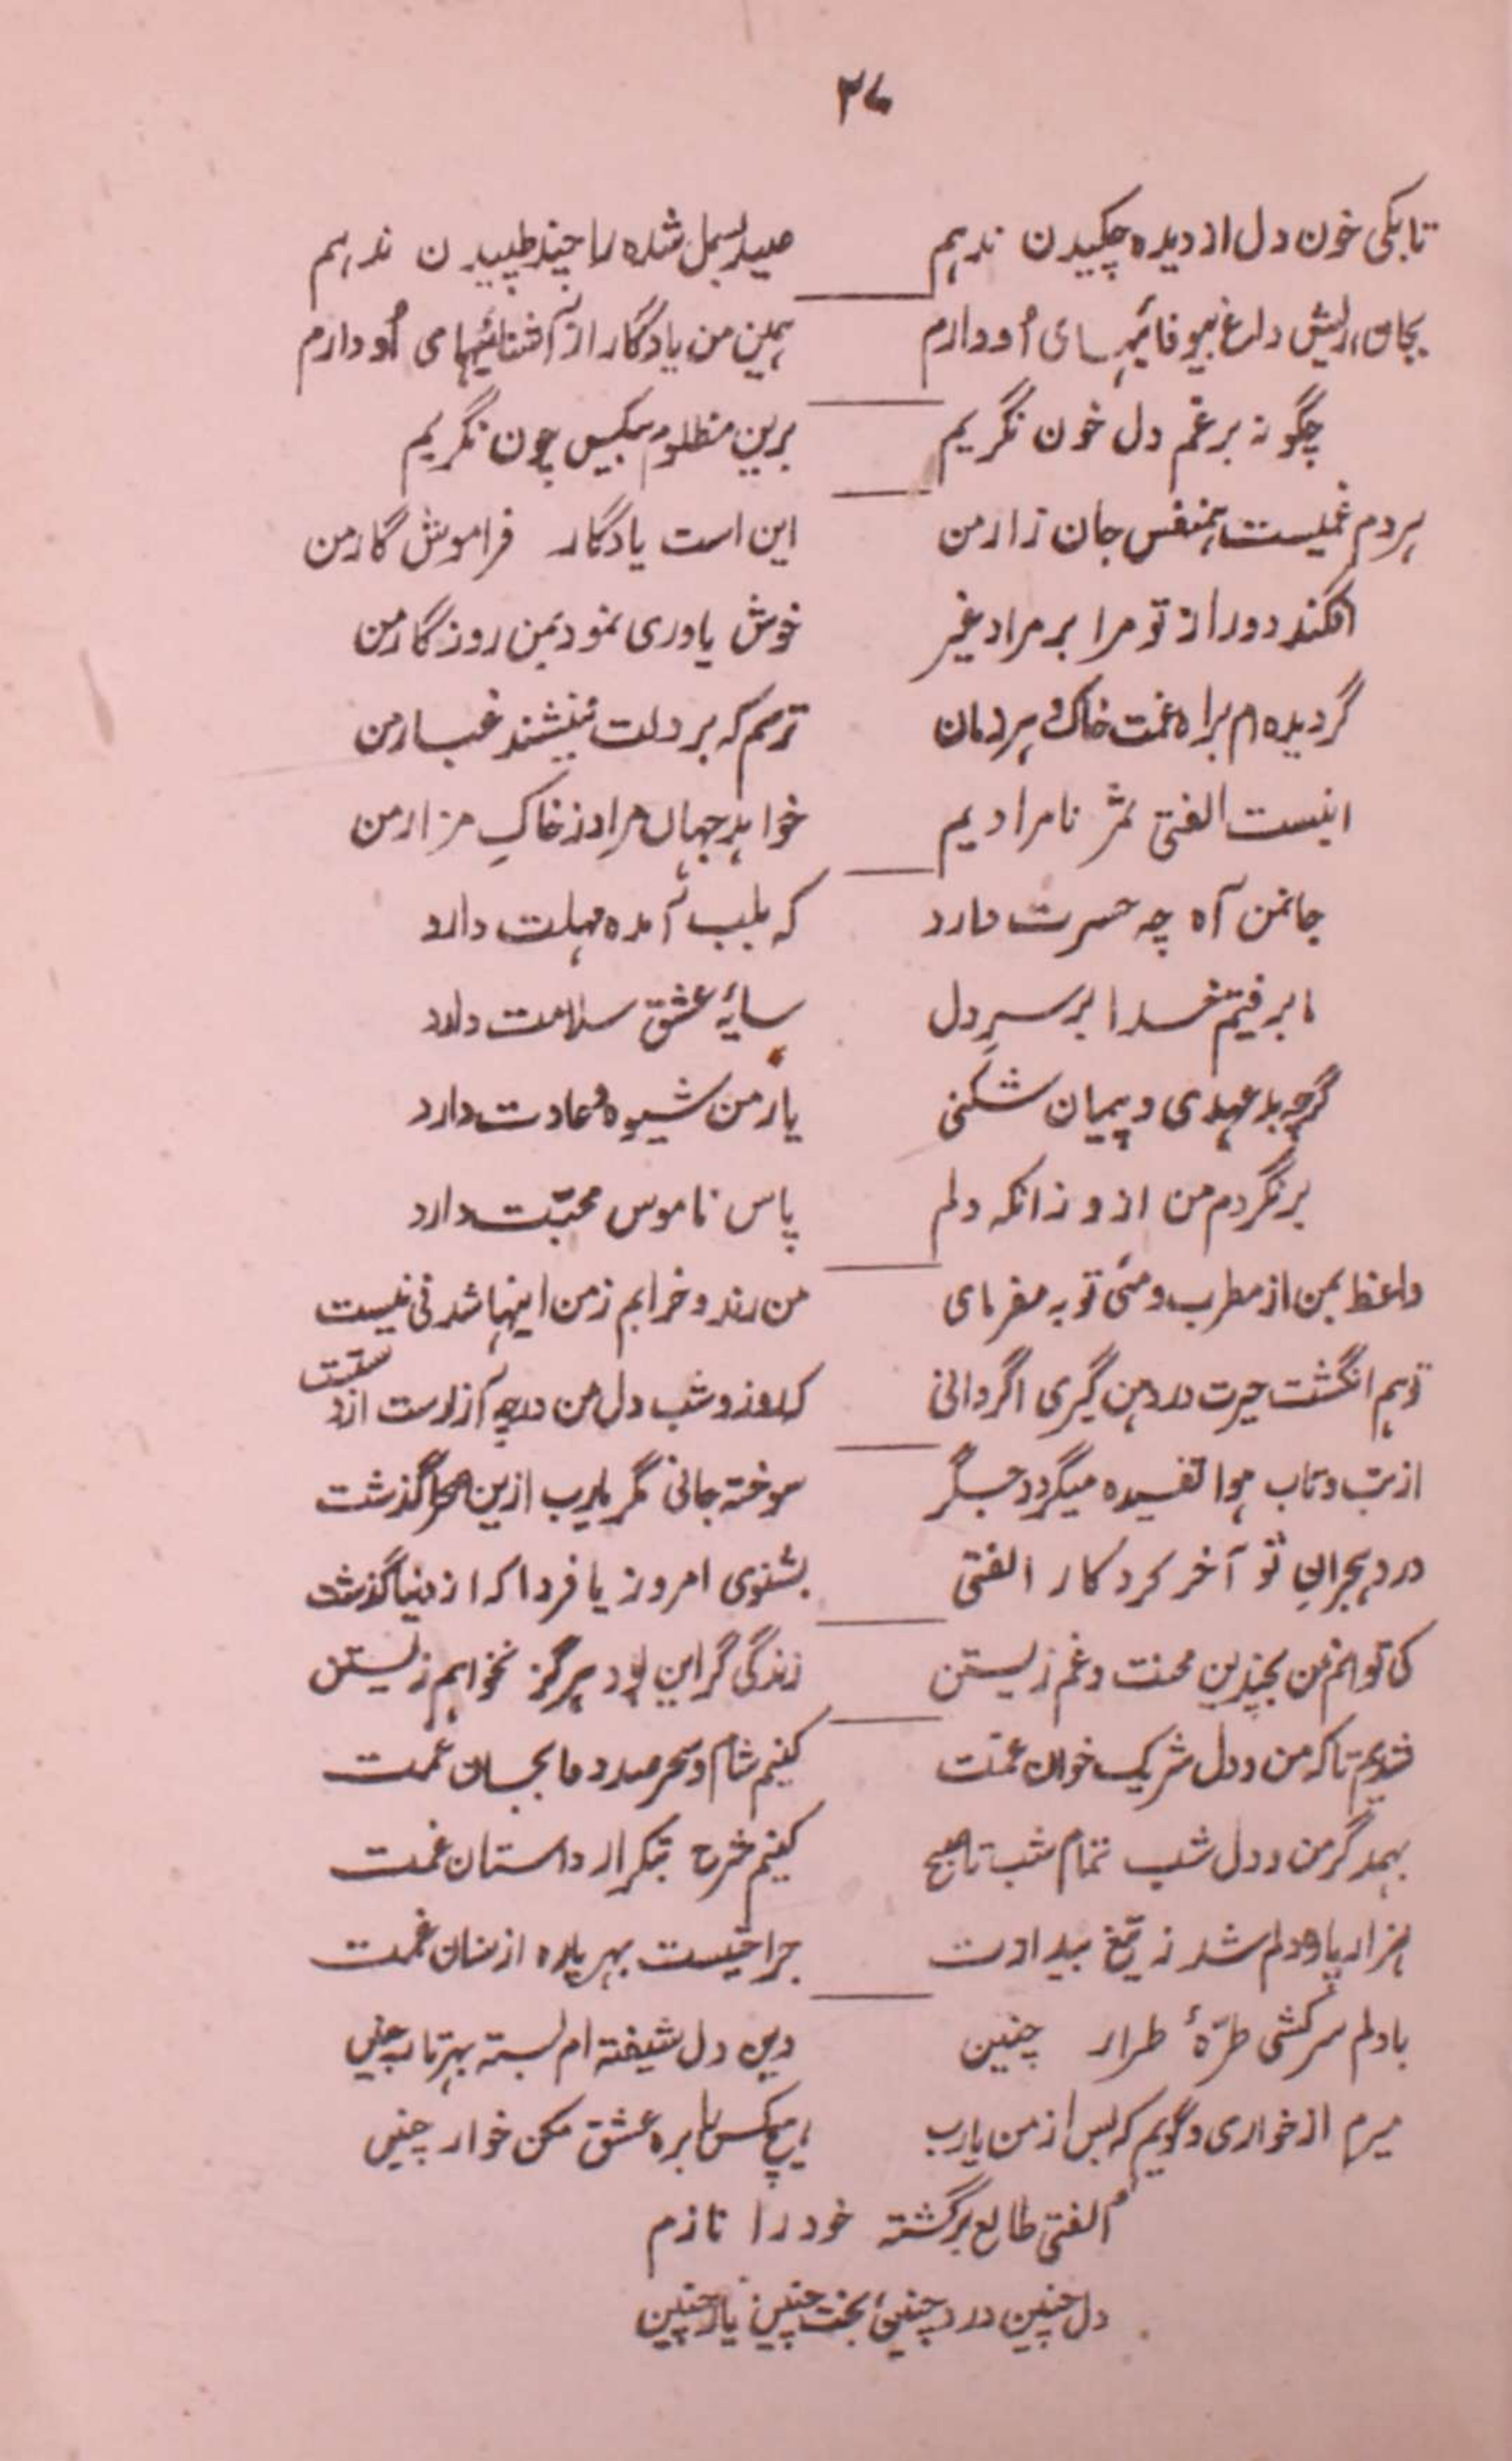 ۳۷
تا بکی خون دل از دیده چکیدن ندہم صید بسمل شدہ را چند طپیدن ندہم
بجان ریش داغ بیوفائیہای اُو دارم ہمین من یادگار از آشنائیہای اُو دارم
چگونہ بر غم دل خون نگریم برین مظلوم بیکس چون نگریم
ہر دم غمیست ہمنفس جان زار من این است یادگار فراموش گار من
افکند دور از تو مرا بر مراد غیر خوش یاوری نمود بمن روزگار من
گردیدہ ام براہ غمت خاک و ہر زمان ترسم کہ بر دلت ننشیند غبار من
اینست الفتی ثمر نامرادیم خواہد جہاں مراد ز خاکِ مزار من
جانمن آہ چہ حسرت دارد کہ بلب آمدہ مہلت دارد
ما برفتیم خدا بر سرِ دل سایۂ عشق سلامت دارد
گرچہ بد عہدی و پیمان شکنی یار من شیوہ و عادت دارد
برنگردم من از و زانکہ دلم پاس ناموس محبّت دارد
واعظ بمن از مطرب و مئی توبہ مفرمای من رند و خرابم ز من اینہا شدنی نیست
تو ہم انگشت حیرت در دہن گیری اگر دانی کہ روز و شب دل من در چہ آزارست از دستت
از تب و تاب ہوا تفسیدہ میگردد جگر سوختہ جانی مگر یارب ازین صحرا گذشت
درد ہجرانِ تو آخر کرد کار الفتی بشنوی امروز یا فردا کہ از دنیا گذشت
کی توانم من بچندین محنت و غم زیستن زندگی گر این بود ہرگز نخواہم زیستن
شدیم تا کہ من و دل شریک خوان غمت کنیم شام و سحر صد دعا بجان غمت
بہمدگر من و دل شب تمام شب تا صبح کنیم شرح بتکرار داستان غمت
ہزار پارہ دلم شد ز تیغ بیدادت جراحتیست بہر پارہ از سنان غمت
با دلم سرکشی طرّۂ طرار چنین وین دل شیفتہ ام بستہ بہر تار چنین
میرم از خواری و گویم کہ پس از من یارب ہیچکس را برہ عشق مکن خوار چنین
الفتی طالع برگشتہ خود را نازم
دل چنین درد چنین بخت چنین یار چنین